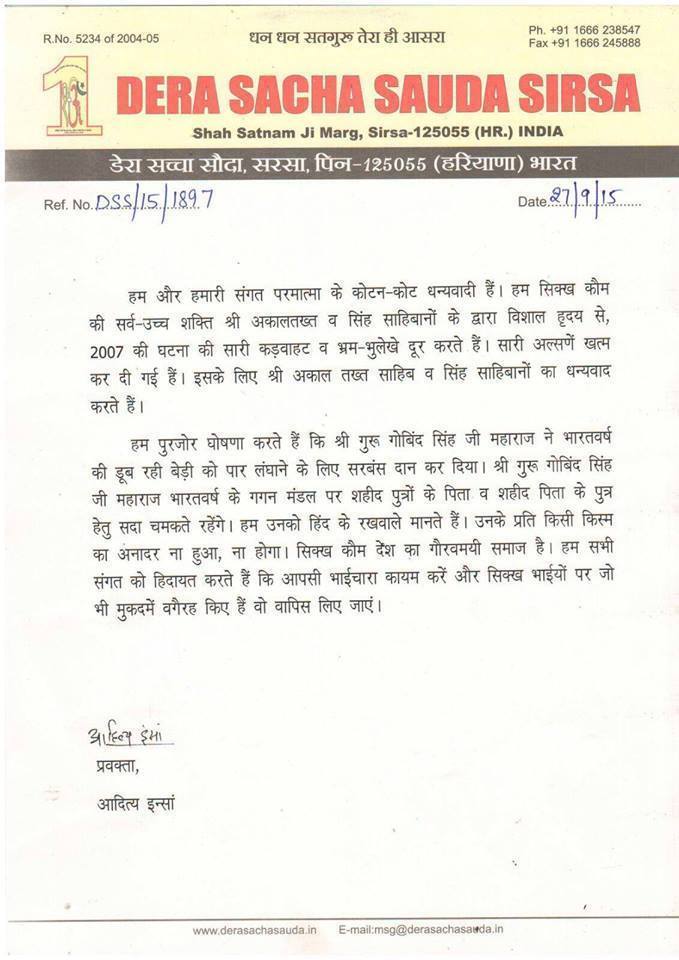 R.No. 5234 of 2004-05
धन धन सतगुरू तेरा ही आसरा
Ph. +91 1666 238547
Fax +91 1666 245888
1
DERA SACHA SAUDA SIRSA
Shah Satnam Ji Marg, Sirsa-125055 (HR.) INDIA
डेरा सच्चा सौदा, सरसा, पिन-125055 (हरियाणा) भारत
Ref. No. DSS/15/1897
Date 27/9/15
हम और हमारी संगत परमात्मा के कोटन-कोट धन्यवादी हैं। हम सिक्ख कौम
की सर्व-उच्च शक्ति श्री अकालतख्त व सिंह साहिबानों के द्वारा विशाल हृदय से,
2007 की घटना की सारी कड़वाहट व भ्रम-भुलेखे दूर करते हैं। सारी अल्सणें खत्म
कर दी गई हैं। इसके लिए श्री अकाल तख्त साहिब व सिंह साहिबानों का धन्यवाद
करते हैं।
हम पुरजोर घोषणा करते हैं कि श्री गुरू गोबिंद सिंह जी महाराज ने भारतवर्ष
की डूब रही बेड़ी को पार लंघाने के लिए सरबंस दान कर दिया। श्री गुरू गोबिंद सिंह
जी महाराज भारतवर्ष के गगन मंडल पर शहीद पुत्रों के पिता व शहीद पिता के पुत्र
हेतु सदा चमकते रहेंगे। हम उनको हिंद के रखवाले मानते हैं। उनके प्रति किसी किस्म
का अनादर ना हुआ, ना होगा। सिक्ख कौम देश का गौरवमयी समाज है। हम सभी
संगत को हिदायत करते हैं कि आपसी भाईचारा कायम करें और सिक्ख भाईयों पर जो
भी मुकदमें वगैरह किए हैं वो वापिस लिए जाएं।
आदित्य इंसां
प्रवक्ता,
आदित्य इन्सां
www.derasachasauda.in E-mail:msg@derasachasauda.in